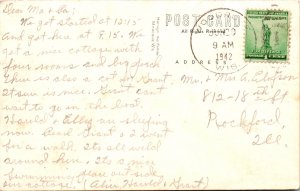 Dear Ma & Pa;
We got started at 12:45
And got here at 8:15. We
got a nice cottage with
four rooms and big porch
There is also a cot so
It sure is nice. don't
want to go on the boat.
Harold + are sleeping
now. Grant + I went
for a walk. It's all wild
around here. It's a nice
swimming place out side
our cottage. (Alice Harold + Grant)
POST CARD
ADDRESS
9 AM
1942
Mr. + Mrs. A.
812-18th St
Rockford,
Ill.